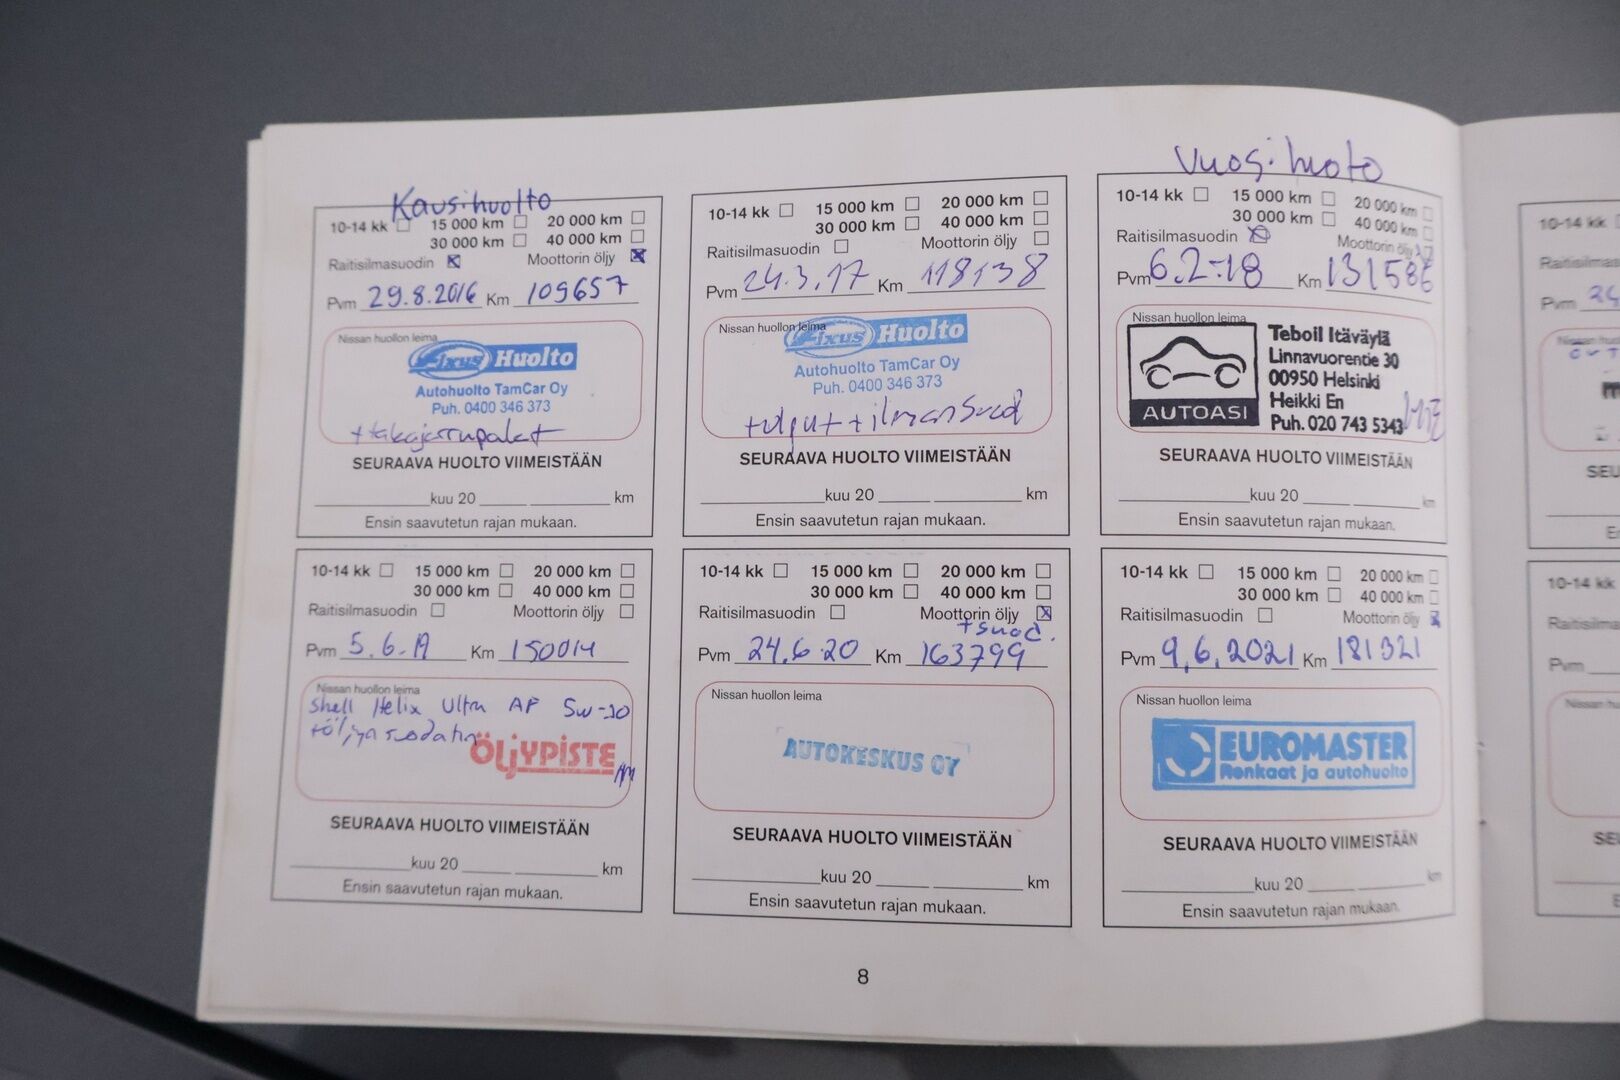 Kausihuolto
10-14 kk 15 000 km 20 000 km
30 000 km 40 000 km
Raitisilmasuodin Moottorin öljy
Pvm 29.8.2016 Km 109657
Nissan huollon leima
Fixus Huolto
Autohuolto TamCar Oy
Puh. 0400 346 373
+takajarrupalat
SEURAAVA HUOLTO VIIMEISTÄÄN
kuu 20 km
Ensin saavutetun rajan mukaan.
10-14 kk 15 000 km 20 000 km
30 000 km 40 000 km
Raitisilmasuodin Moottorin öljy
Pvm 24.3.17 Km 118138
Nissan huollon leima
Fixus Huolto
Autohuolto TamCar Oy
Puh. 0400 346 373
SEURAAVA HUOLTO VIIMEISTÄÄN
kuu 20 km
Ensin saavutetun rajan mukaan.
Vuosihuoto
10-14 kk 15 000 km 20 000 km
30 000 km 40 000 km
Raitisilmasuodin Moottorin öljy
Pvm 6.2-18 Km 131586
Nissan huollon leima
AUTOASI
Teboil Itäväylä
Linnavuorentie 30
00950 Helsinki
Heikki En
Puh. 020 743 5343
SEURAAVA HUOLTO VIIMEISTÄÄN
kuu 20 km
Ensin saavutetun rajan mukaan.
10-14 kk 15 000 km 20 000 km
30 000 km 40 000 km
Raitisilmasuodin Moottorin öljy
Pvm 5.6.19 Km 150014
Nissan huollon leima
Shell Helix Ultra AF 5w-30
+öljynsuodatin
ÖLJYPISTE
SEURAAVA HUOLTO VIIMEISTÄÄN
kuu 20 km
Ensin saavutetun rajan mukaan.
10-14 kk 15 000 km 20 000 km
30 000 km 40 000 km
Raitisilmasuodin Moottorin öljy
+suod.
Pvm 24.6.20 Km 163799
Nissan huollon leima
AUTOKESKUS OY
SEURAAVA HUOLTO VIIMEISTÄÄN
kuu 20 km
Ensin saavutetun rajan mukaan.
10-14 kk 15 000 km 20 000 km
30 000 km 40 000 km
Raitisilmasuodin Moottorin öljy
Pvm 9.6.2021 Km 181321
Nissan huollon leima
EUROMASTER
Renkaat ja autohuolto
SEURAAVA HUOLTO VIIMEISTÄÄN
kuu 20 km
Ensin saavutetun rajan mukaan.
8
10-14 kk
Pvm
10-14 kk
Pvm